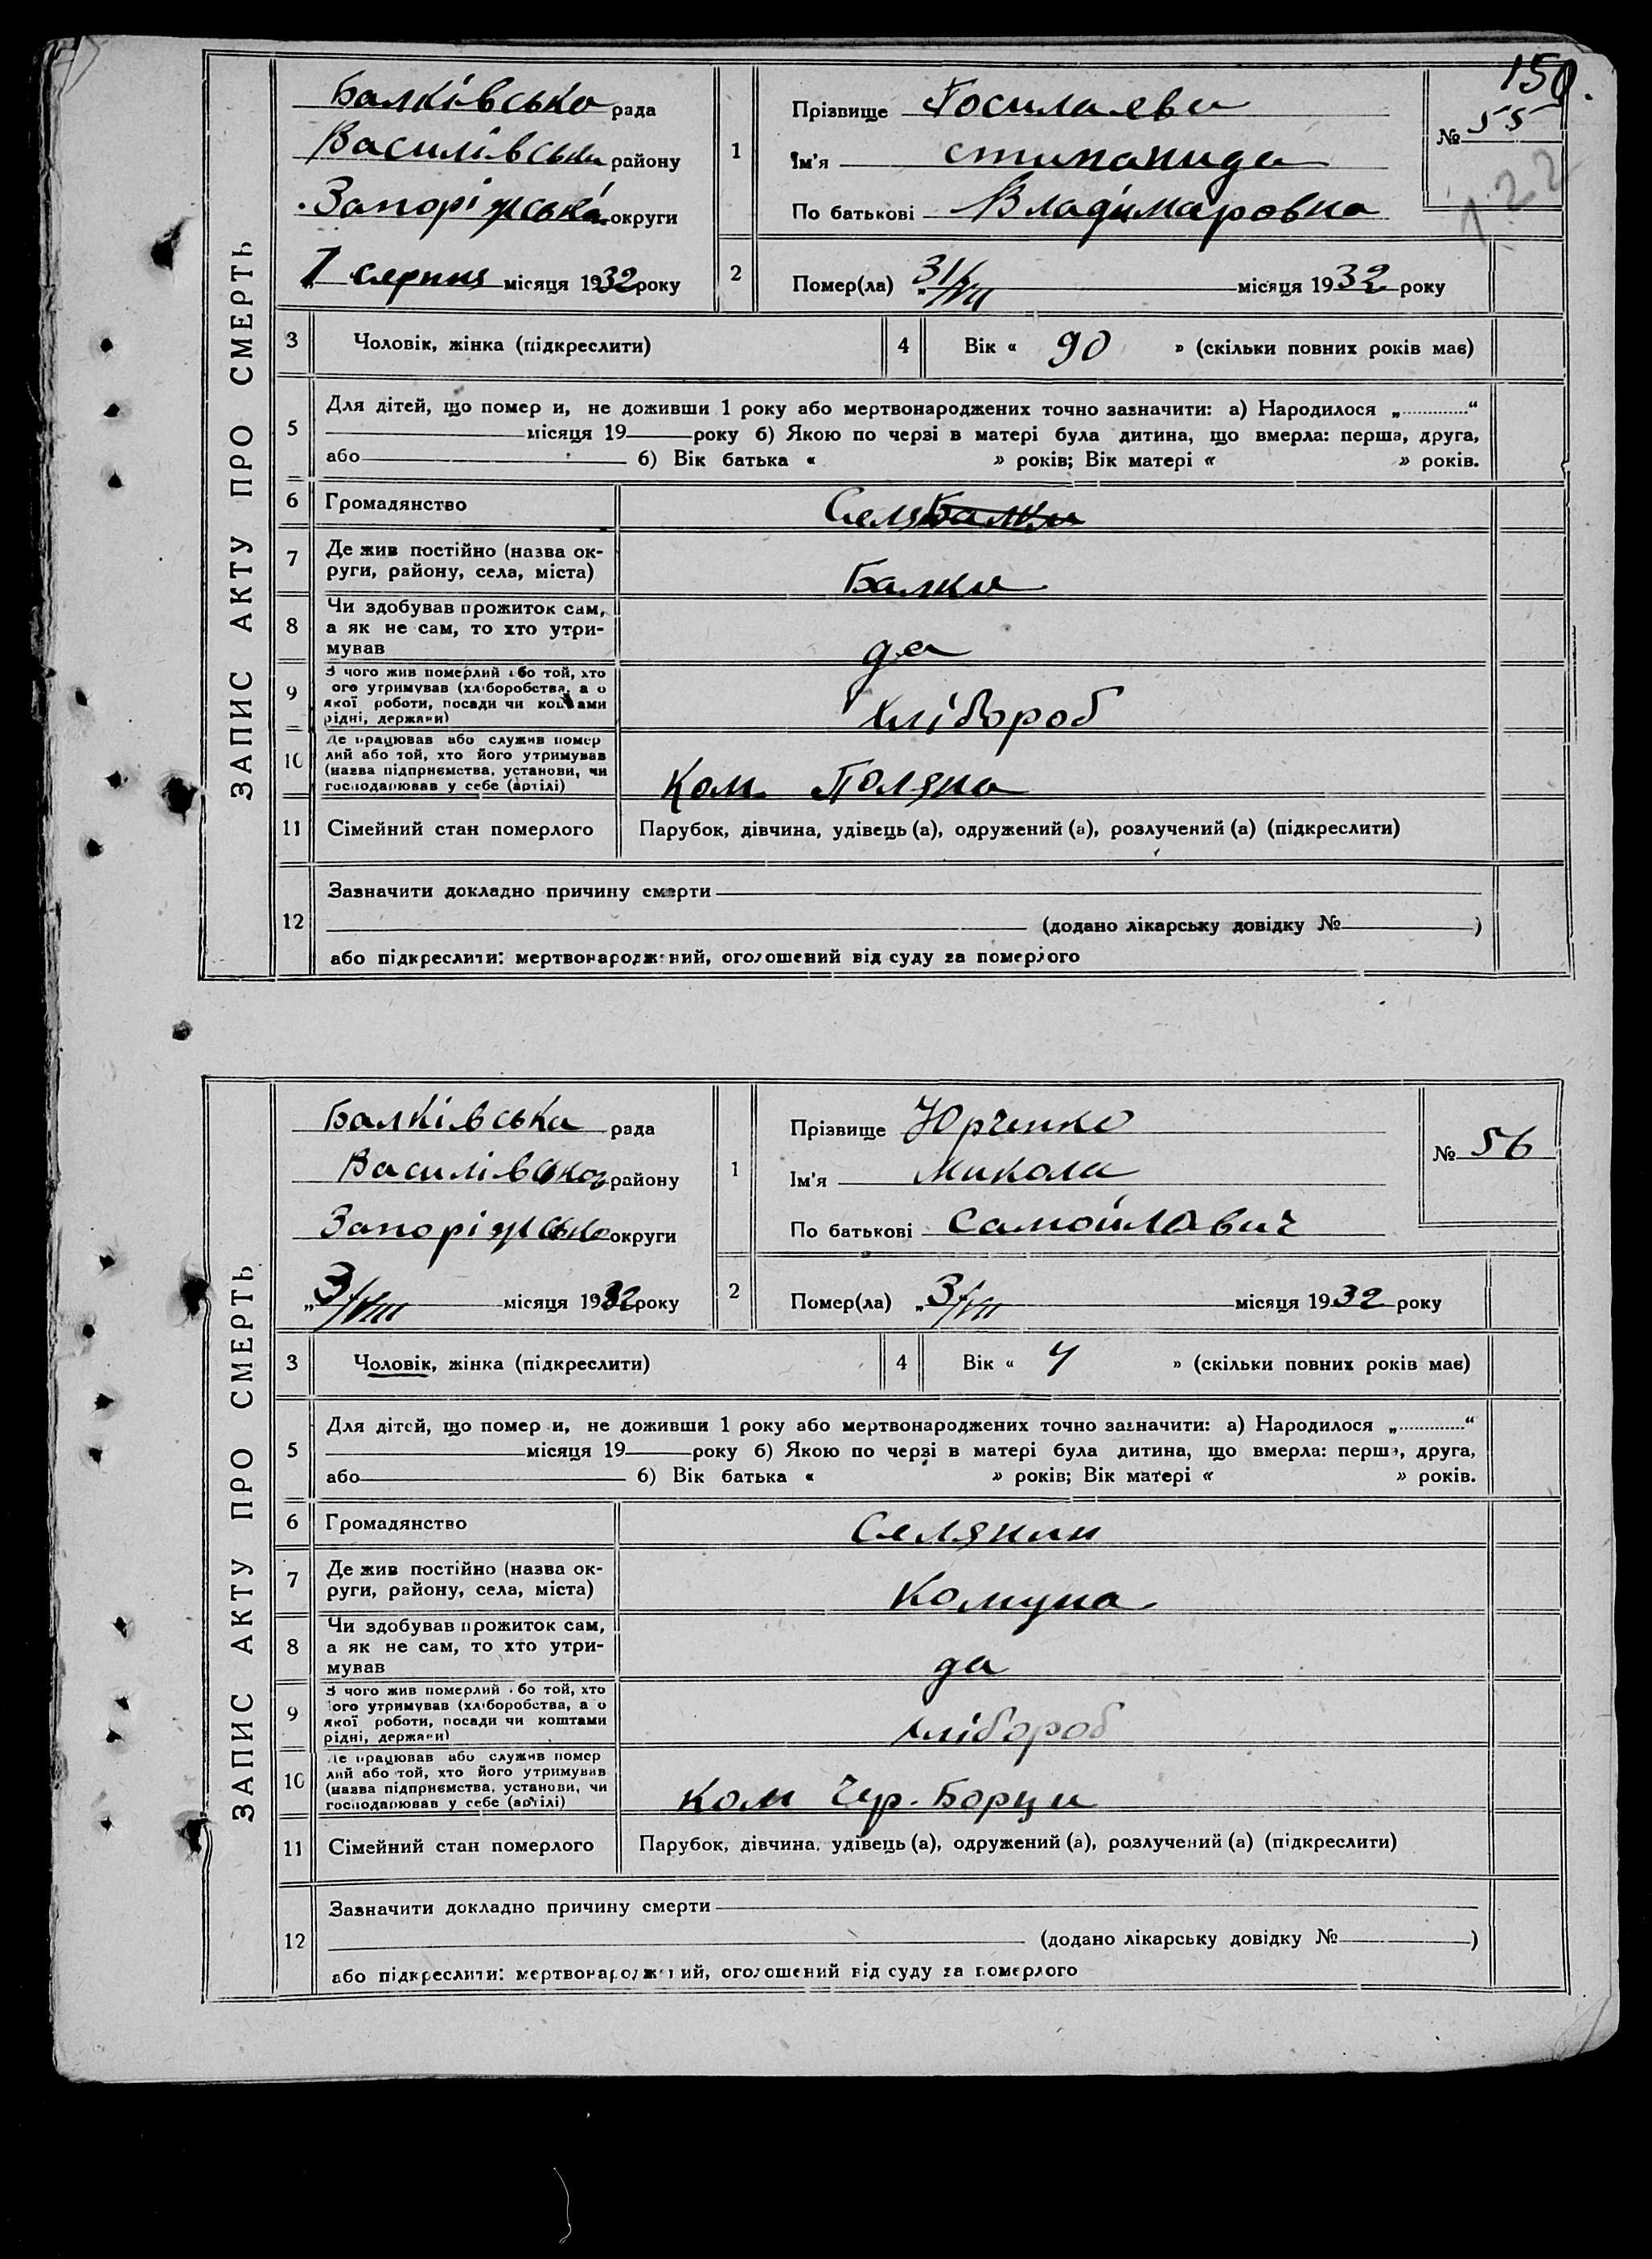 150.
ЗАПИС АКТУ ПРО СМЕРТЬ
Балківська рада
Василівська району
Запоріжська округи
1 серпня місяця 1932 року
1
Прізвище
Ім'я
По батькові Владимаровна
№ 55
122
2
Помер(ла) „31/VII місяця 1932 року
3 Чоловік, жінка (підкреслити)
4 Вік « 90 » (скільки повних років має)
5 Для дітей, що помер и, не доживши 1 року або мертвонароджених точно зазначити: а) Народилося „ “
місяця 19 року б) Якою по черзі в матері була дитина, що вмерла: перша, друга,
або б) Вік батька « » років; Вік матері « » років.
6 Громадянство Селя Балки
7 Де жив постійно (назва ок-
руги, району, села, міста) Балки
8 Чи здобував прожиток сам,
а як не сам, то хто утри-
мував да
9 З чого жив померлий або той, хто
ого утримував (хліборобства, а о
якої роботи, посади чи коштами
рідні, держави) хлібороб
10 Де працював або служив помер
лий або той, хто його утримував
(назва підприємства, установи, чи
господарював у себе (артілі) Ком Поляна
11 Сімейний стан померлого Парубок, дівчина, удівець (а), одружений (а), розлучений (а) (підкреслити)
12 Зазначити докладно причину смерти
(додано лікарську довідку № )
або підкреслити: мертвонароджений, оголошений від суду за померлого
ЗАПИС АКТУ ПРО СМЕРТЬ
Балківська рада
Василівсько району
Запоріжсько округи
„3/VIII місяця 1932 року
1
Прізвище Юрченко
Ім'я Микола
По батькові Самойлович
№ 56
2
Помер(ла) „3/VII місяця 1932 року
3 Чоловік, жінка (підкреслити)
4 Вік « » (скільки повних років має)
5 Для дітей, що помер и, не доживши 1 року або мертвонароджених точно зазначити: а) Народилося „ “
місяця 19 року б) Якою по черзі в матері була дитина, що вмерла: перша, друга,
або б) Вік батька « » років; Вік матері « » років.
6 Громадянство Селянин
7 Де жив постійно (назва ок-
руги, району, села, міста) Комуна
8 Чи здобував прожиток сам,
а як не сам, то хто утри-
мував да
9 З чого жив померлий або той, хто
ого утримував (хліборобства, а о
якої роботи, посади чи коштами
рідні, держави) хлібороб
10 Де працював або служив помер
лий або той, хто його утримував
(назва підприємства, установи, чи
господарював у себе (артілі) Ком Чер. Борци
11 Сімейний стан померлого Парубок, дівчина, удівець (а), одружений (а), розлучений (а) (підкреслити)
12 Зазначити докладно причину смерти
(додано лікарську довідку № )
або підкреслити: мертвонароджений, оголошений від суду за померлого